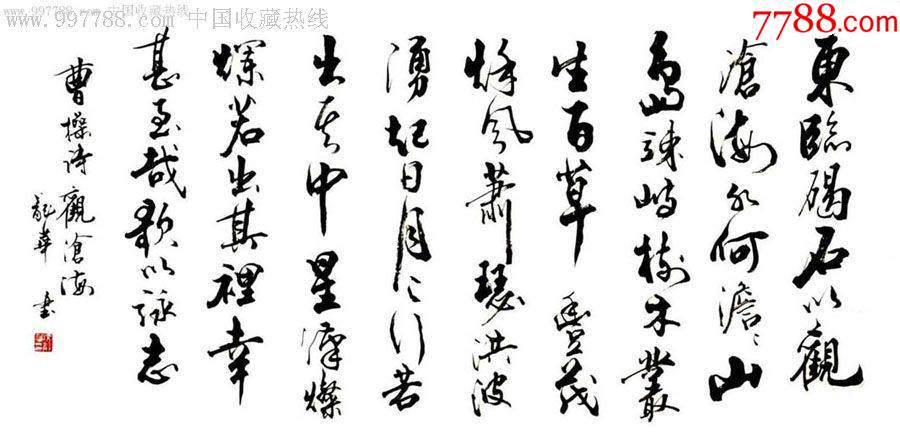 www.997788.com 中国收藏热线
www.997788.com 中国收藏热线
7788.com
東臨碣石以觀
滄海水何澹〻山
島竦峙樹木叢
生百草豐茂
秋風蕭瑟洪波
湧起日月之行若
出其中星漢燦
爛若出其裡幸
甚至哉歌以詠志
曹操詩觀滄海
龍華書